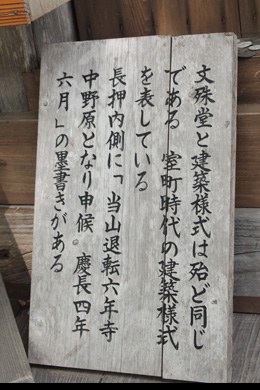 文殊堂と建築様式は殆ど同じ
である 室町時代の建築様式
を表している
長押内側に「当山退転六年寺
中野原となり申候 慶長四年
六月」の墨書きがある